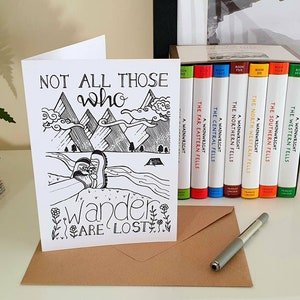 NOT ALL THOSE
who
Wander
ARE LOST
A. WAINWRIGHT
THE FAR EASTERN FELLS
A. WAINWRIGHT
THE CENTRAL FELLS
A. WAINWRIGHT
THE NORTHERN FELLS
A. WAINWRIGHT
A. WAINWRIGHT
THE SOUTHERN FELLS
A. WAINWRIGHT
THE WESTERN FELLS